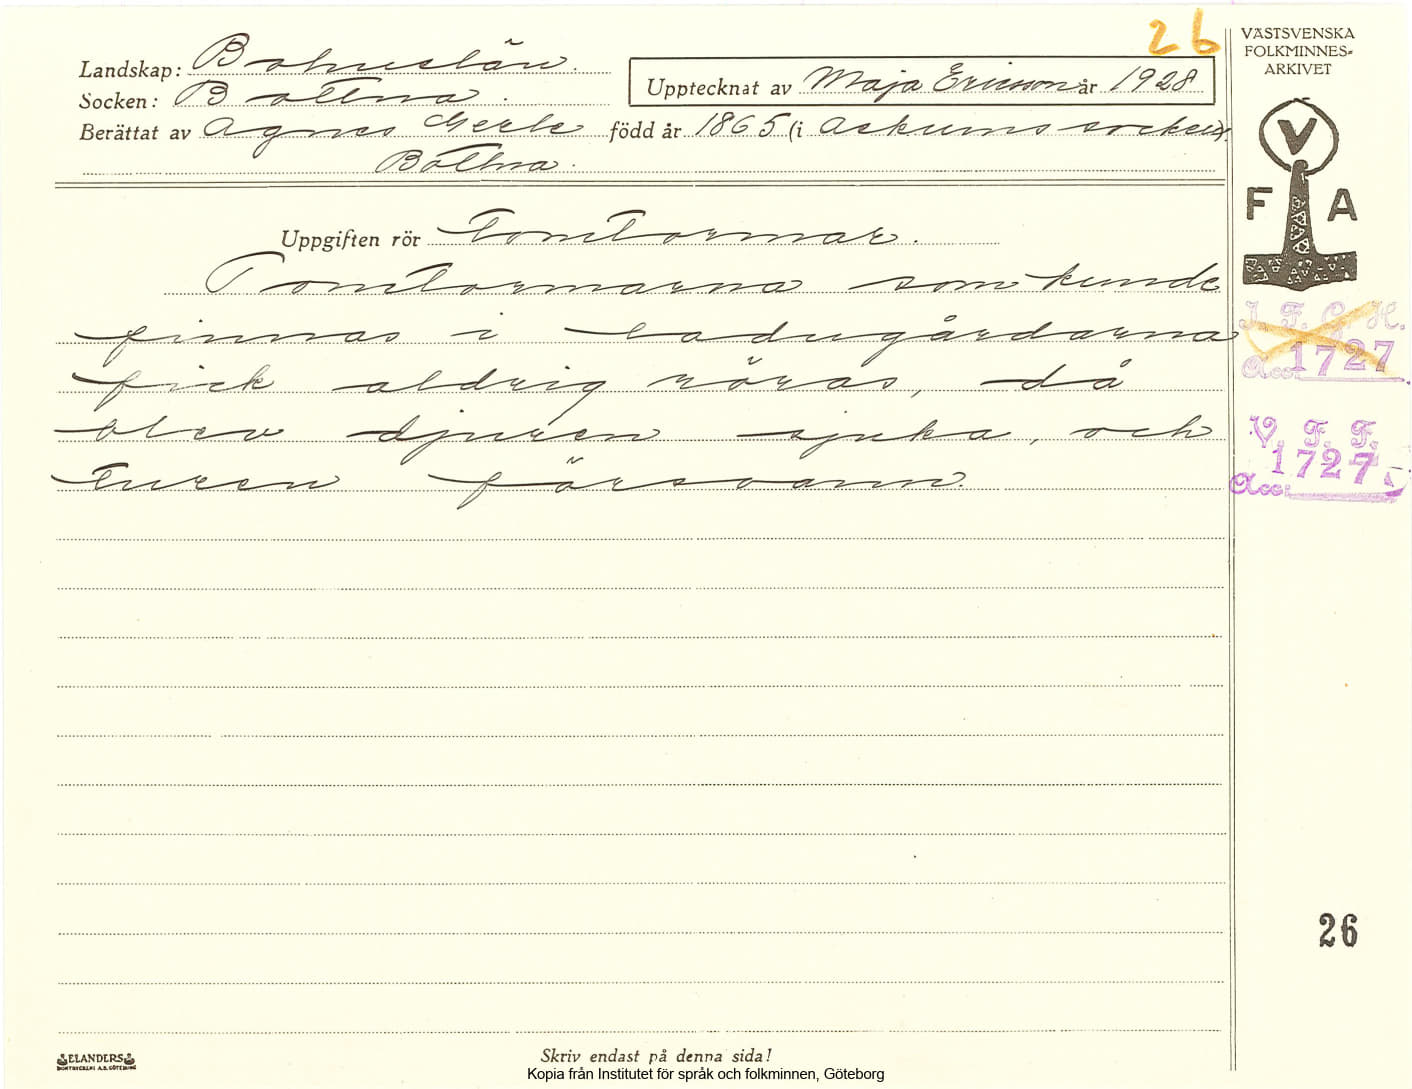 26
Landskap: Bohuslän.
Socken: Bottna.
Upptecknat av Maja Ericson år 1928
Berättat av Agnes Gerle född år 1865 (i Askums socken).
Bottna.
VÄSTSVENSKA
FOLKMINNES-
ARKIVET
V
F A
Uppgiften rör Tomtormar.
Tomtormarna som kunde
finnas i ladugårdarna
fick aldrig röras, då
blev djuren sjuka, och
turen försvann.
I. F. G. H.
Acc. 1727
V. F. F.
Acc: 1727
26
ELANDERS
BOKTRYCKERI A.B. GÖTEBORG
Skriv endast på denna sida!
Kopia från Institutet för språk och folkminnen, Göteborg